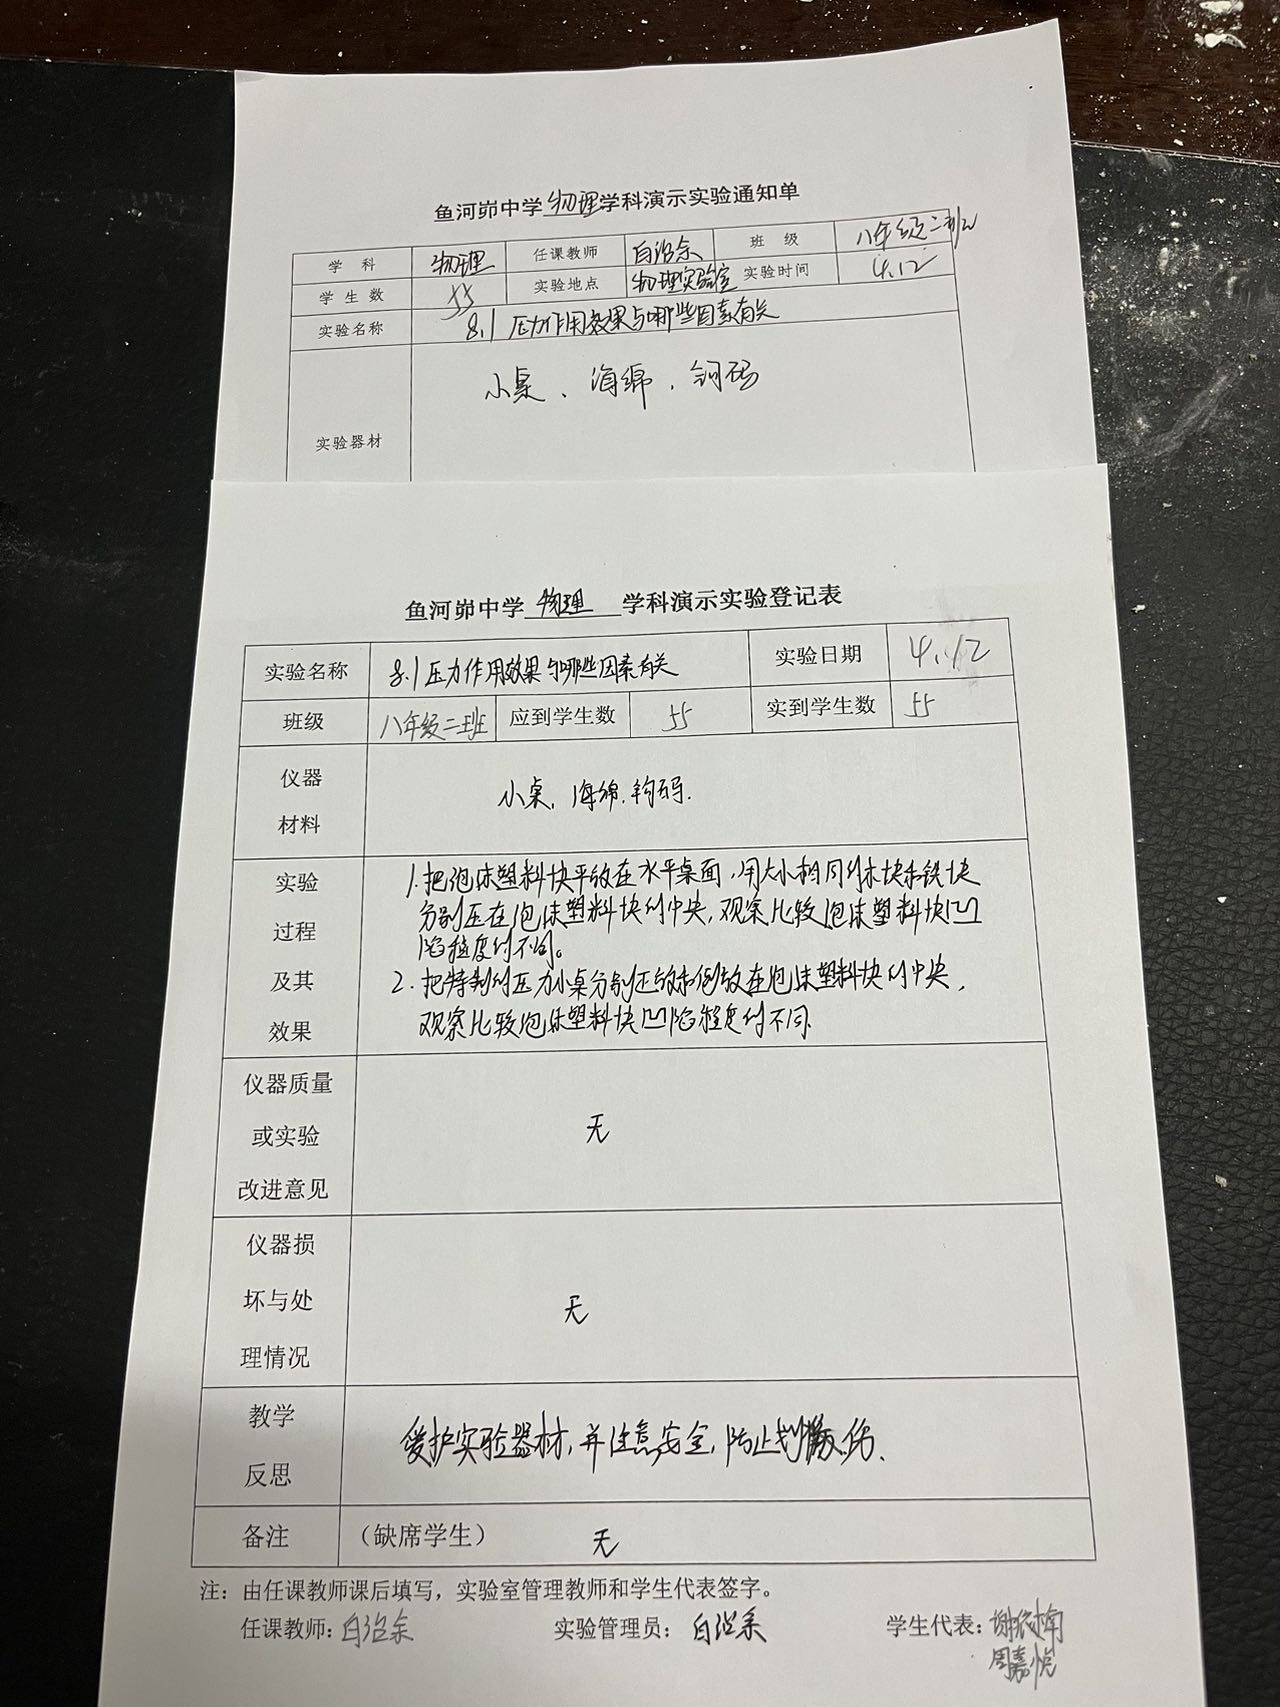 鱼河峁中学物理学科演示实验通知单
学 科 物理 任课教师 白治余 班 级 八年级二班
学生数 55 实验地点 物理实验室 实验时间 4.12
实验名称 8.1 压力作用效果与哪些因素有关
实验器材 小桌、海绵、钩码
鱼河峁中学 物理 学科演示实验登记表
实验名称 8.1 压力作用效果与哪些因素有关 实验日期 4.12
班级 八年级二班 应到学生数 55 实到学生数 55
仪器
小桌、海绵、钩码.
材料
实验 1.把泡沫塑料块平放在水平桌面,用大小相同的木块和铁块
分别压在泡沫塑料块的中央,观察比较泡沫塑料块凹
过程
陷程度的不同。
及其 2.把特制的压力小桌分别正放和倒放在泡沫塑料块的中央,
效果 观察比较泡沫塑料块凹陷程度的不同.
仪器质量
或实验 无
改进意见
仪器损
坏与处 无
理情况
教学
爱护实验器材,并注意安全,防止划伤.
反思
备注 (缺席学生) 无
注:由任课教师课后填写,实验室管理教师和学生代表签字。
任课教师:白治余 实验管理员:白治余 学生代表:
周嘉悦